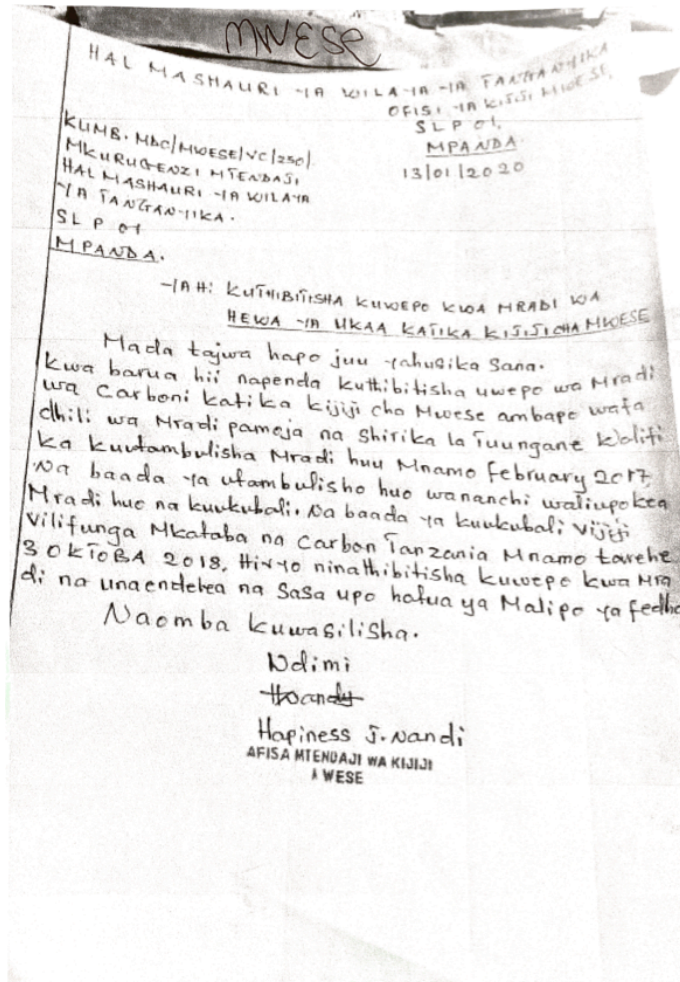 MWESE
HALMASHAURI YA WILAYA YA TANGANYIKA
OFISI YA KIJIJI MWESE,
SLP 01,
MPANDA.
13/01/2020
KUMB. MDC/MWESE/VC/250/.
MKURUGENZI MTENDAJI,
HALMASHAURI YA WILAYA
YA TANGANYIKA.
SLP 01
MPANDA.
YAH: KUTHIBITISHA KUWEPO KWA MRADI WA
HEWA YA UKAA KATIKA KIJIJI CHA MWESE
Mada tajwa hapo juu yahusika sana.
Kwa barua hii napenda kuthibitisha uwepo wa Mradi
wa Carboni katika kijiji cha Mwese ambapo wafa
dhili wa Mradi pamoja na Shirika la Tuungane
ka kuutambulisha Mradi huu Mnamo february 2017,
Na baada ya utambulisho huo wananchi waliupokea
Mradi huo na kuukubali. Na baada ya kuukubali vijiji
vilifunga Mkataba na Carbon Tanzania Mnamo tarehe
3 OKTOBA 2018. Hivyo ninathibitisha kuwepo kwa Mra
di na unaendelea na Sasa upo hatua ya Malipo ya fedha
Naomba kuwasilisha.
Ndimi
Hapiness J. Nandi
AFISA MTENDAJI WA KIJIJI
WESE